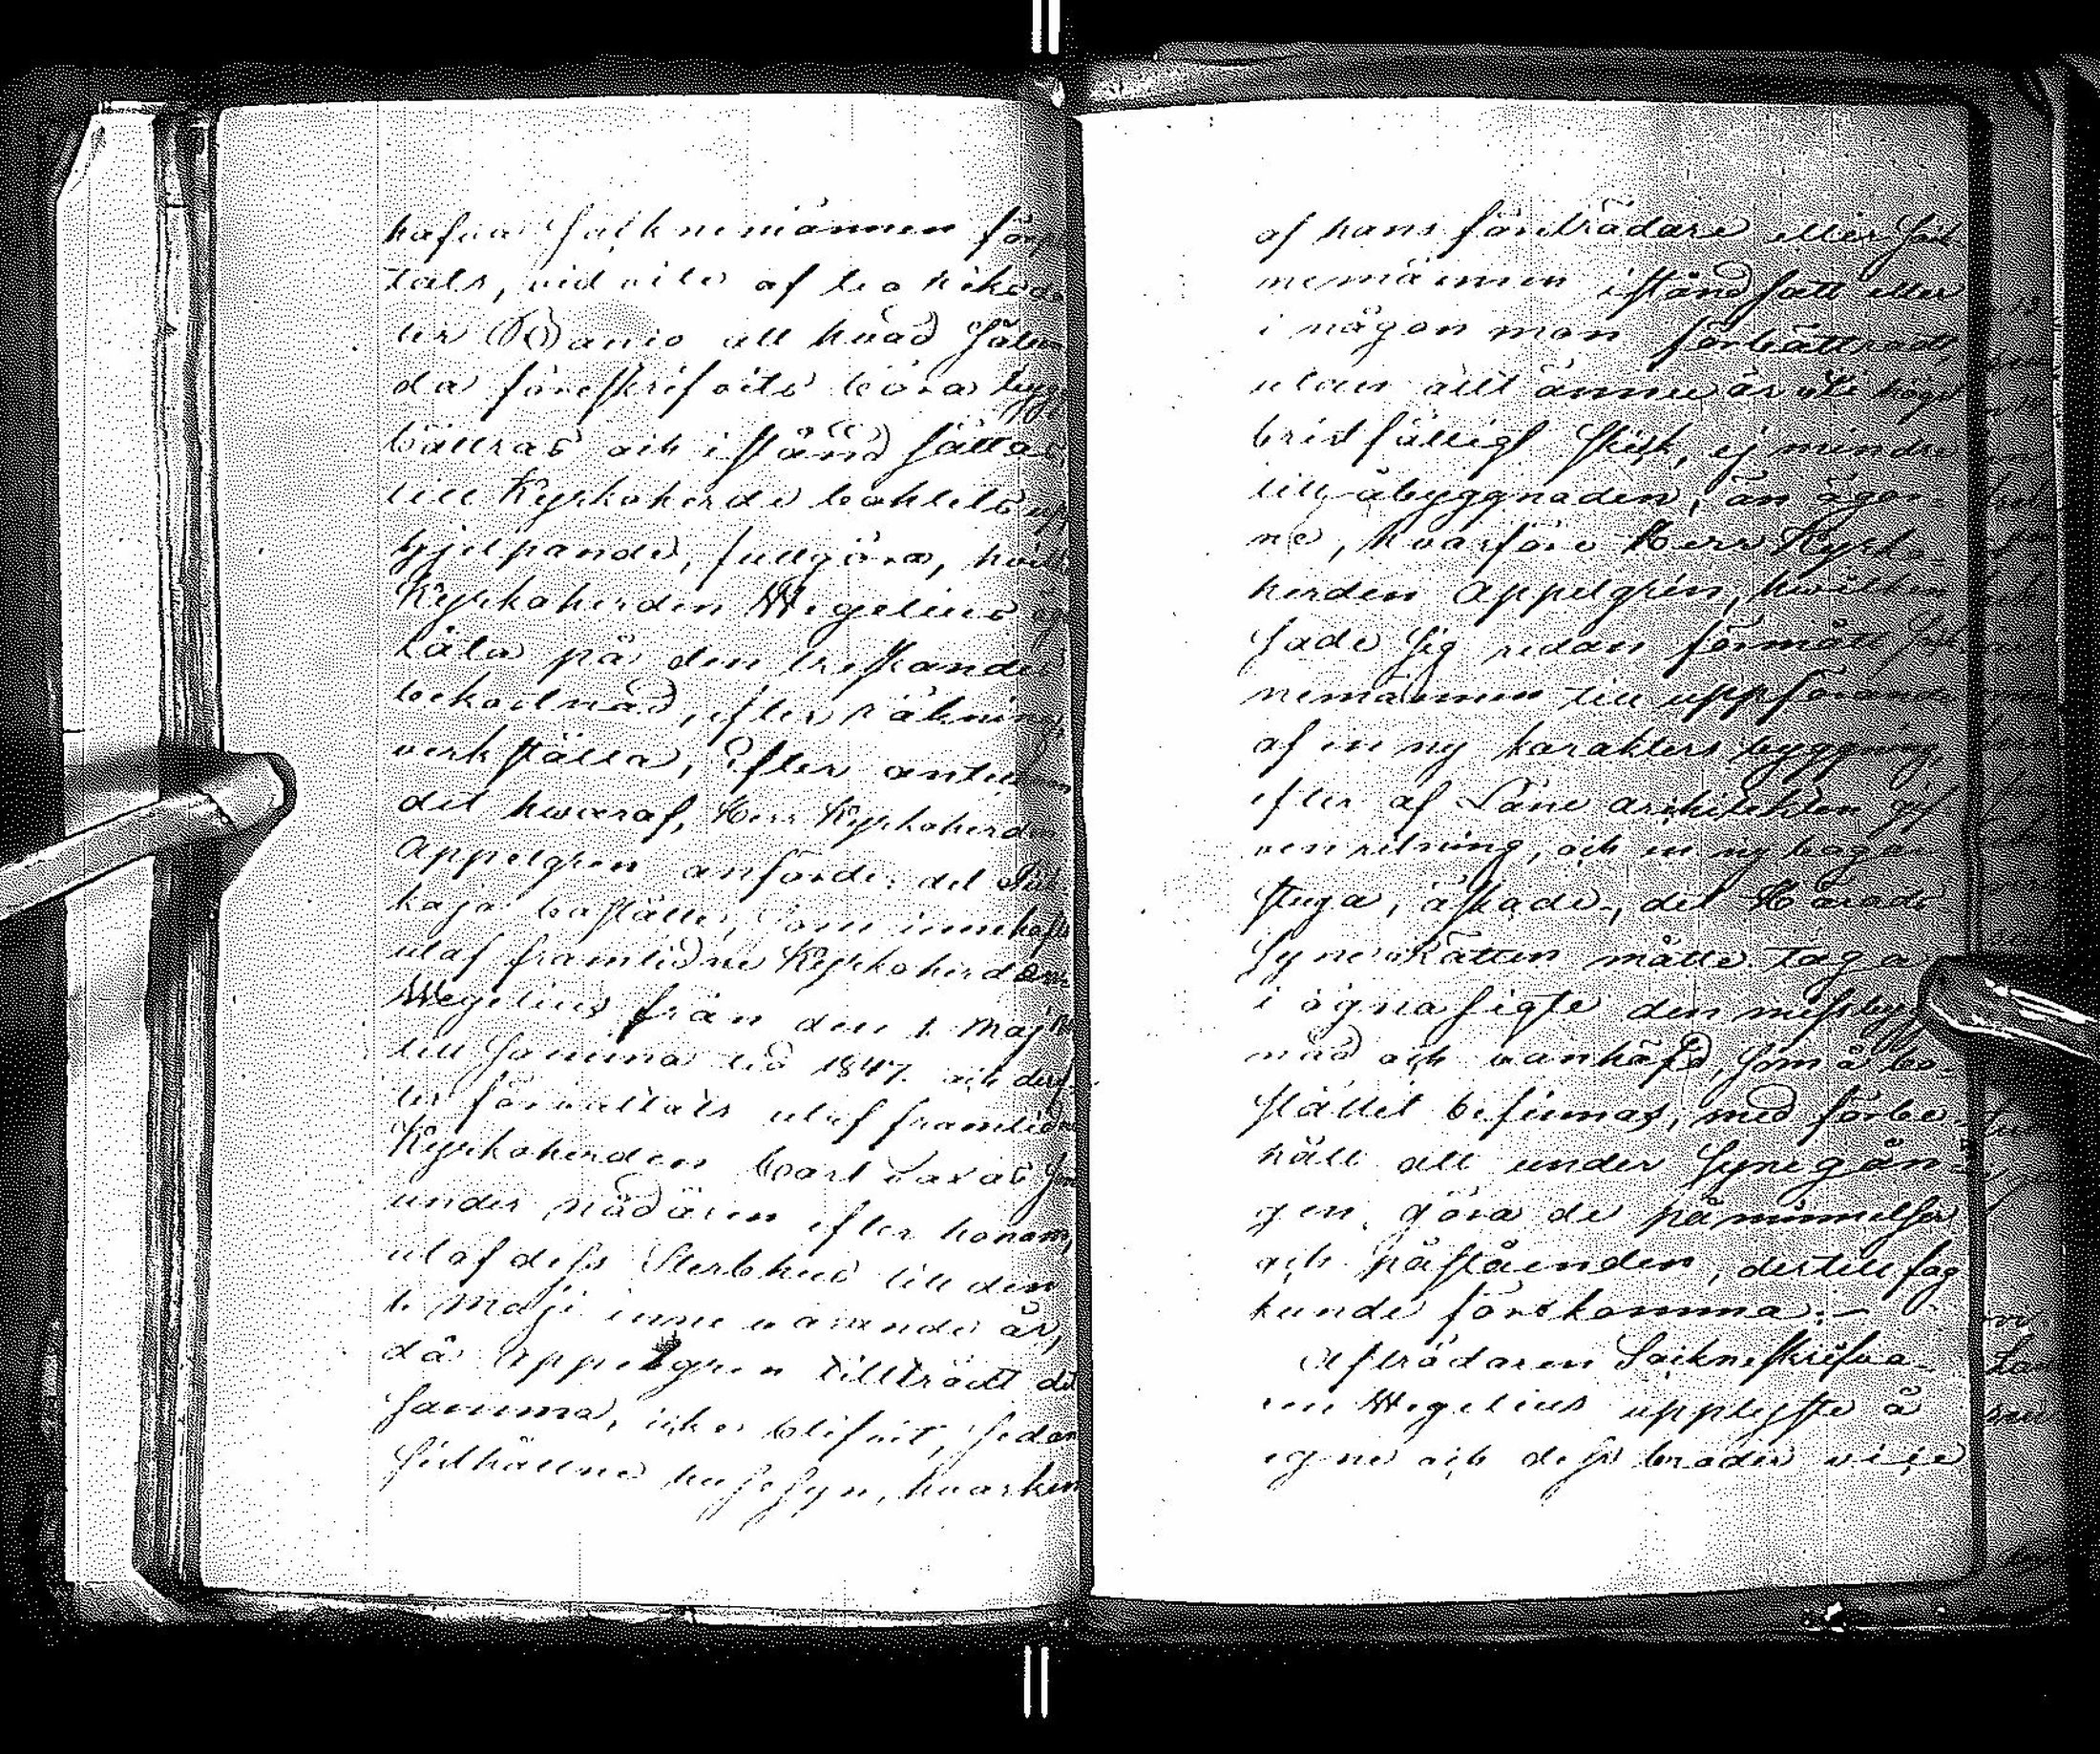 hafva Socknemännen förp
tats, vid vite af
ter Banio all hvad Sålun
da föreskrifvits böra bygg
bättras och i stånd sättas,
till Kyrkoherde boställets upp
hjelpande, fullgöra, hvil
Kyrkoherden Wegelius äg
låta på den treskandes
bekostnad, efter räkning,
verkställa, Efter
det hwaraf, Herr Kyrkoherden
Appelgren anförde, det
kaja boställe, Som innehafts
utaf framlidne Kyrkoherden
Wegelius från den 1. Maj
till Samma tid 1847. och deref
ter förvaltats utaf framlidne
Kyrkoherden Carl Saxas Som
under nådåren efter honom,
utaf dess Sterbhus till den
1. Maji innevarande år,
då Appelgren tillträdt det
Samma, icke blifvit, Sedan
Sidhållne husesyn, hvarken
af hans företrädare eller Sock
nemännen i stånd satt eller
i någon mon förbättradt
utan allt ännu är uti högst
bristfälligt skick, ej mindre
till åbyggnaden, än ägor-
ne, hvarföre Herr Kyrko-
herden Appelgren, hwilken
Sade Sig redan förmått Sock
nemännen till uppförande
af en ny karakters byggning,
efter af Läne arkitekten gif
ven ritning, och en ny bagar
stuga, äskade, det Härads
Syne Rätten måtte taga
i ögnasigte den missbygg
nad och vanhäfd, Som å bo-
stället befinnas, med förbe
håll att under Synegån-
gen, göra de påminnelser
och påståenden, dertill fog
kunde förekomma:-
Afträdaren Socknesskrifva-
ren Wegelius upplyste å
egne och dess broder vice